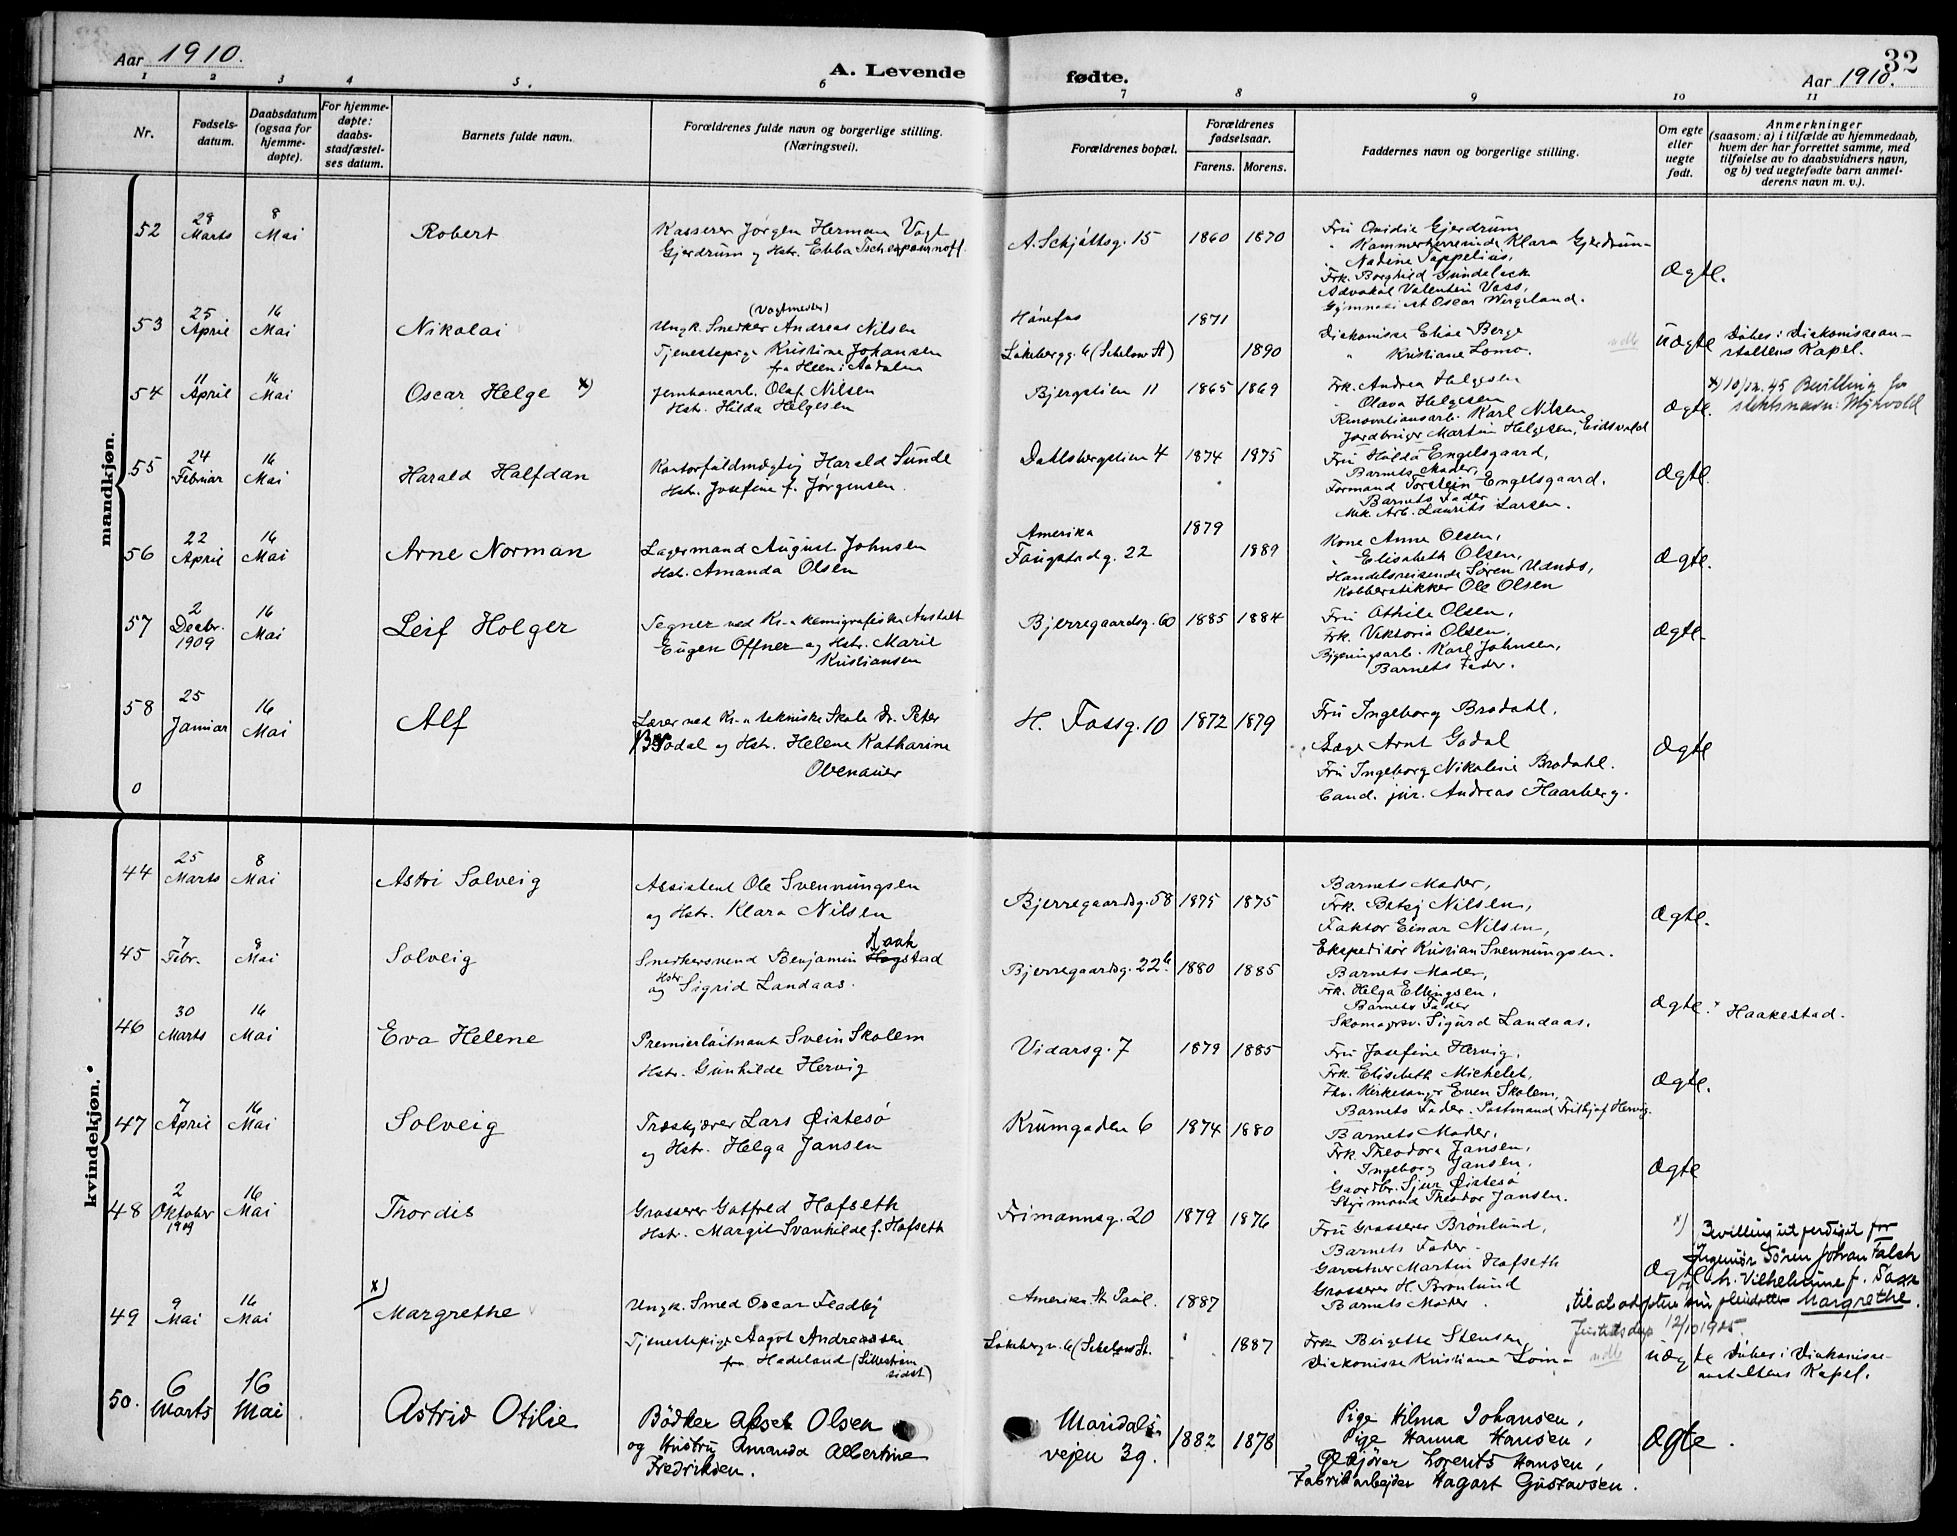 Aar 1910.
A. Levende fødte.
32
Aar 1910.
1 2 3 4 5. 6 7 8 9 10 11
Nr.
Fødsels-
datum.
Daabsdatum
(ogsaa for
hjemme-
døpte).
For hjemme-
døpte:
daabs-
stadfæstel-
ses datum.
Barnets fulde navn.
Forældrenes fulde navn og borgerlige stilling.
(Næringsvei).
Forældrenes bopæl.
Forældrenes
fødselsaar.
Farens. Morens.
Faddernes navn og borgerlige stilling.
Om egte
eller
uegte
født.
Anmerkninger
(saasom: a) i tilfælde av hjemmedaab,
hvem der har forrettet samme, med
tilføielse av to daabsvidners navn,
og b) ved uegtefødte barn anmel-
derens navn m. v.).
mandkjøn.
52
28
Marts
8
Mai
Robert
Kasserer Jørgen Herman Vogt
Gjerdrum og Hstr. Ebba
A. Schjøttsg. 15
1860 1870
Fru Ovidia Gjerdrum
" Kammerherreinde Klara Gjerdrum
" Nadine Tappelius,
Frk. Borghild Gundelach
Advokat Valentin Voss,
Gymnasiast Oscar Wergeland.
Ægte.
53
25
April
16
Mai
Nikolai
Ungk. Snedker Andreas Nilsen
Tjenestepige Kristine Johansen
fra Heen i Aadalen
Hønefos
Lakebergg. 6 (Schelow St)
1871
1890
Diakonisse Elise Berge
" Kristiane Lomo.
Uægte
Døbes i Diakonissean-
staltens Kapel.
54
11
April
16
Mai
Oscar Helge x)
Jernbanearb. Olaf Nilsen
Hstr. Hilda Helgesen
Bjergstien 11
1865 1869
Frk. Andrea Helgesen
" Olava Helgesen
Renovationsarb. Karl Nilsen
Jordbruger Martin Helgesen, Eidsvold
Ægte.
x) 10/12. 45 Bevilling for
slektsnavn: Myrvold
55
24
Februar
16
Mai
Harald Halfdan
Kontorfuldmægtig Harald Sunde
Hstr. Josefine f. Jørgensen.
Dahlsbergstien 4
1874 1875
Fru Hulda Engelsgaard,
Barnets Moder,
Formand Torstein Engelsgaard.
Barnets Fader
Mek. Arb. Laurits Larsen.
Ægte.
56
22
April
16
Mai
Arne Norman
Lagermand August Johnsen
Hstr. Amanda Olsen
Amerika
Faugstadg. 22
1879
1889
Kone Anna Olsen,
" Elisabeth Olsen,
Handelsreisende Søren Udnæs,
Kobberstikker Ole Olsen
Ægte.
57
2
Decbr.
1909
16
Mai
Leif Holger
Tegner ved Kr.a kemigrafiske Anstalt
Eugen Offner og Hstr. Marie
Kristiansen
Bjerregaardsg. 60
1885 1884
Fru Othile Olsen,
Frk. Viktoria Olsen,
Bygningsarb. Karl Johnsen,
Barnets Fader.
Ægte.
58
25
Januar
16
Mai
Alf
Lærer ved Kr.a tekniske Skole Dr. Peter
Brodal og Hstr. Helene Katharine
Obenauer
H. Fossg. 10
1872 1879
Fru Ingeborg Brodahl.
Læge Arnt Godal
Fru Ingeborg Nikoline Brodahl.
Cand. jur. Andreas Haarberg.
Ægte
0
kvindekjøn.
44
25
Marts
8
Mai
Astri Solveig
Assistent Ole Svennungsen
og Hstr. Klara Nilsen
Bjerregaardsg. 58
1875 1875
Barnets Moder,
Frk. Betsy Nilsen,
Faktor Einar Nilsen,
Ekspeditør Kristian Svennungsen.
Ægte.
45
7
Febr.
8
Mai
Solveig
Haak
Snedkersvend Benjamin Hogstad
og Hstr. Sigrid Landaas.
Bjerregaardsg. 22b
1880 1885
Barnets Moder,
Frk. Helga Ellingsen,
Barnets Fader
Skomagersv. Sigurd Landaas.
Ægte.
Haakestad.
46
30
Marts
16
Mai
Eva Helene
Premierløitnant Svein Skolem
Hstr. Gunhilde Hervig
Vidarsg. 7
1879 1885
Fru Josefine Hervig,
Frk. Elisabeth Michelet,
Fhv. Kirkesanger Even Skolem,
Barnets Fader. Postmand Fridtjof Hervig.
Ægte.
47
7
April
16
Mai
Solveig
Træskjærer Lars Øistesø
og Hstr. Helga Jansen
Krumgaden 6
1874 1880
Barnets Moder,
Frk. Theodora Jansen,
" Ingeborg Jansen,
Gaardbr. Sjur Øistesø
Styrmand Theodor Jansen.
Ægte
48
2
Oktober
1909
16
Mai
Thordis
Grosserer Gotfred Hofseth
Hstr. Margit Svanhilde f. Hofseth
Frimannsg. 20
1879 1876
Fru Grosserer Brønlund,
Barnets Fader.
Gartner Martin Hofseth
Grosserer H. Brønlund
Barnets Moder
Ægte
x) Bevilling utferdiget for
Ingeniør Sören Johan Falch
h. Vilhelmine f.
til at adoptere sin pleiedatter Margrethe.
12/10 1925.
49
9
Mai
16
Mai
x)
Margrethe
Ungk. Smed Oscar Fladby
Tjenestepige Aagot Andreassen
fra Hadeland (Lillestrøm
sidst)
Amerika. St. Paul.
Lakebergv. 6 (Schelow St.
1887
1887
Frk. Birgette Stensen
Diakonisse Kristiane Lom-
uægte
Døbes i Diakonisse-
anstaltens Kapel.
50.
6
Marts
16
Mai
Astrid Otilie
Bødker Aksel Olsen
og Hustru Amanda Albertine
Fredriksen.
Maridals-
vejen 39.
1882 1878
Pige Hilma Johansen,
Pige Hanna Hansen,
Ølkjører Lorents Hansen,
Fabrikarbejder Hagart Gustavsen.
Ægte.